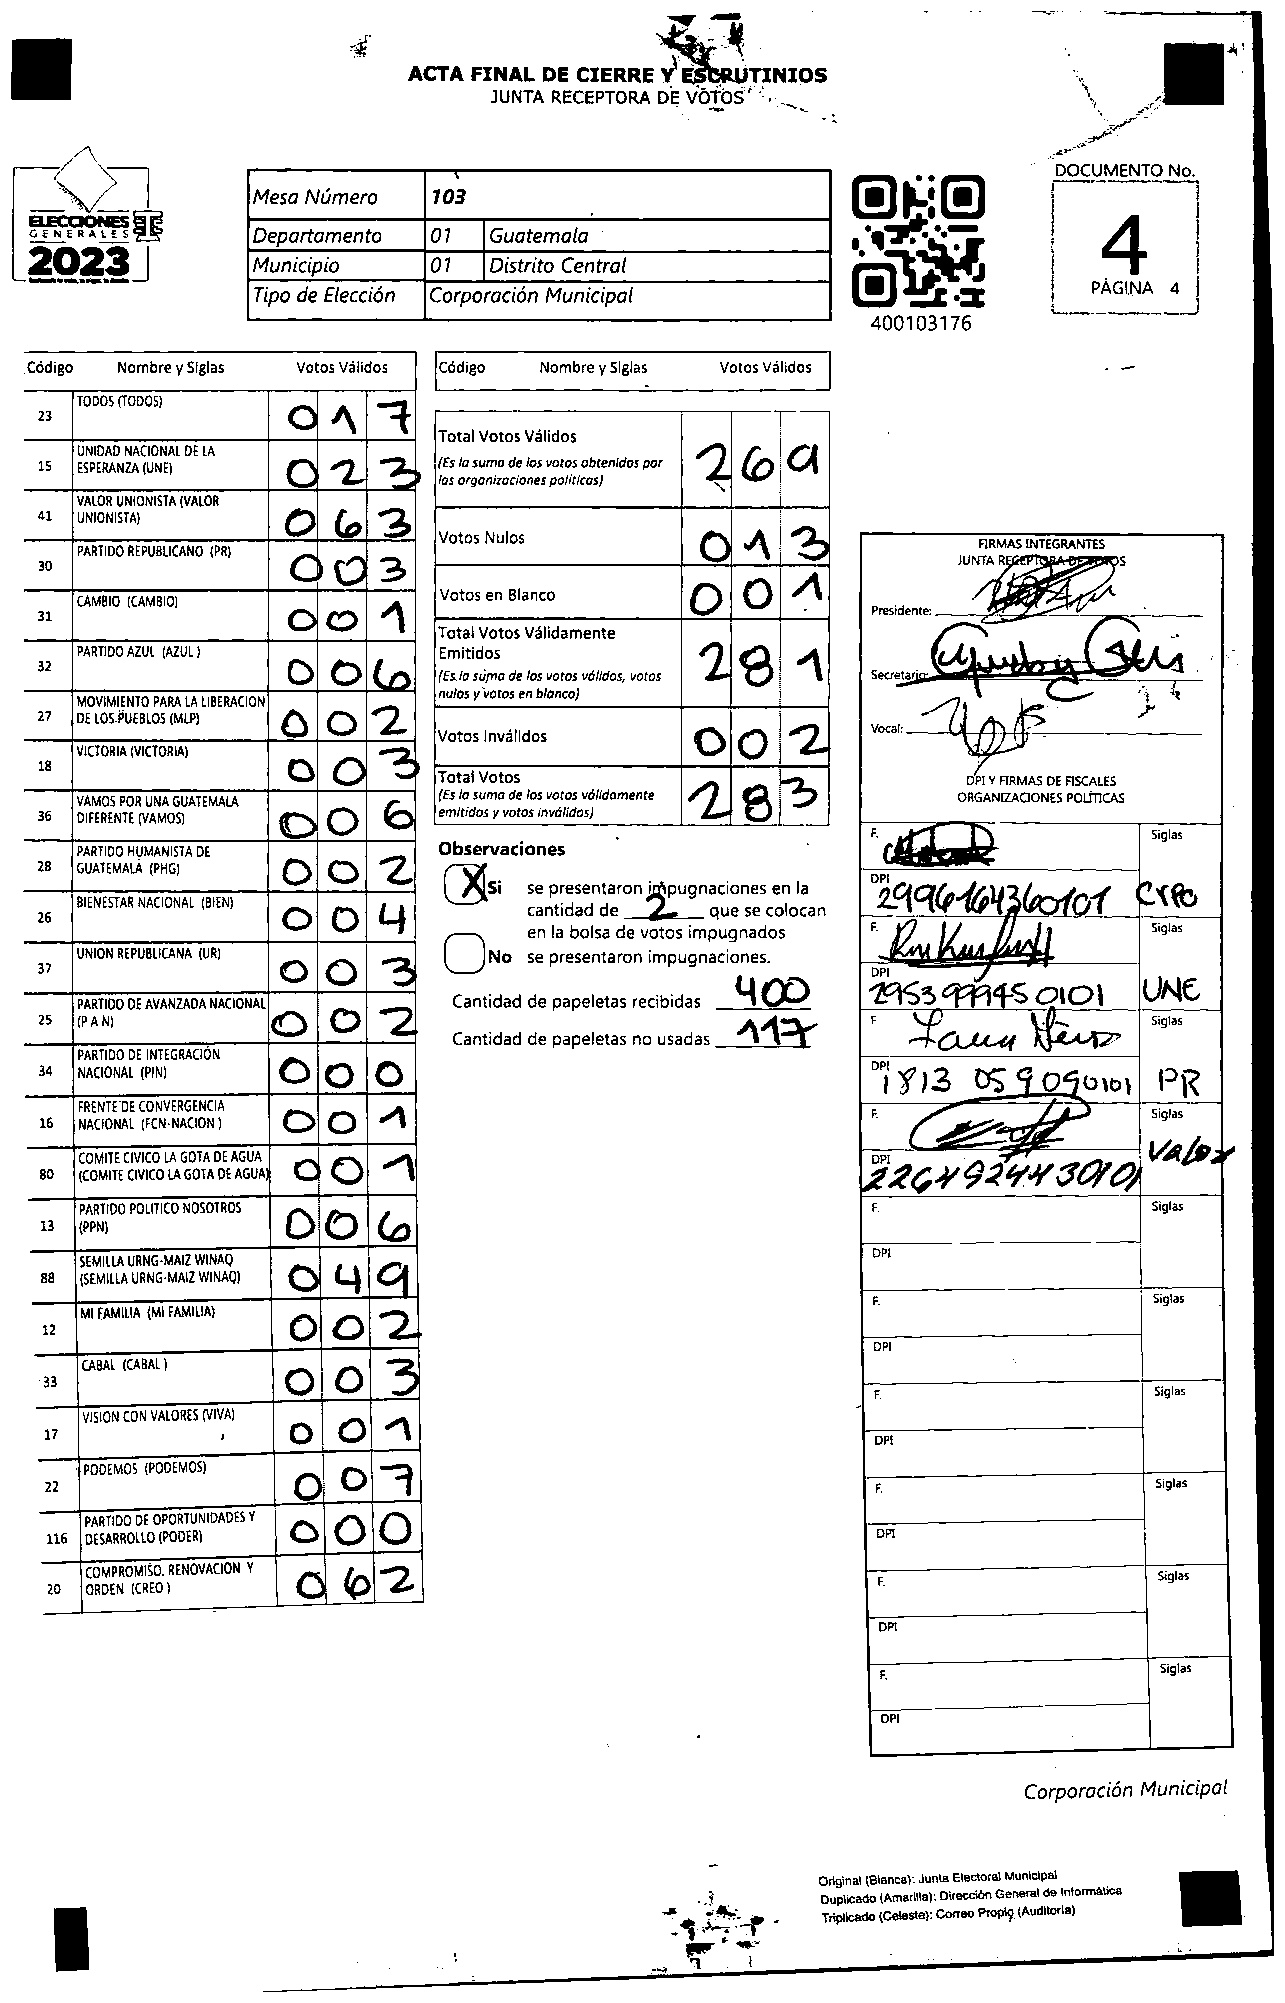 ACTA FINAL DE CIERRE Y ESCRUTINIOS
JUNTA RECEPTORA DE VOTOS
ELECCIONES
GENERALES
2023
Mesa Número 103
Departamento 01 Guatemala
Municipio 01 Distrito Central
Tipo de Elección Corporación Municipal
400103176
DOCUMENTO No.
4
PÁGINA 4
Código Nombre y Siglas Votos Válidos
23 TODOS (TODOS) 0 1 7
15 UNIDAD NACIONAL DE LA
ESPERANZA (UNE) 0 2 3
41 VALOR UNIONISTA (VALOR
UNIONISTA) 0 6 3
30 PARTIDO REPUBLICANO (PR) 0 0 3
31 CAMBIO (CAMBIO) 0 0 1
32 PARTIDO AZUL (AZUL) 0 0 6
27 MOVIMIENTO PARA LA LIBERACION
DE LOS PUEBLOS (MLP) 0 0 2
18 VICTORIA (VICTORIA) 0 0 3
36 VAMOS POR UNA GUATEMALA
DIFERENTE (VAMOS) 0 0 6
28 PARTIDO HUMANISTA DE
GUATEMALA (PHG) 0 0 2
26 BIENESTAR NACIONAL (BIEN) 0 0 4
37 UNION REPUBLICANA (UR) 0 0 3
25 PARTIDO DE AVANZADA NACIONAL
(P A N) 0 0 2
34 PARTIDO DE INTEGRACIÓN
NACIONAL (PIN) 0 0 0
16 FRENTE DE CONVERGENCIA
NACIONAL (FCN-NACION) 0 0 1
80 COMITE CIVICO LA GOTA DE AGUA
(COMITE CIVICO LA GOTA DE AGUA) 0 0 1
13 PARTIDO POLITICO NOSOTROS
(PPN) 0 0 6
88 SEMILLA URNG-MAIZ WINAQ
(SEMILLA URNG-MAIZ WINAQ) 0 4 9
12 MI FAMILIA (MI FAMILIA) 0 0 2
33 CABAL (CABAL) 0 0 3
17 VISION CON VALORES (VIVA) 0 0 1
22 PODEMOS (PODEMOS) 0 0 7
116 PARTIDO DE OPORTUNIDADES Y
DESARROLLO (PODER) 0 0 0
20 COMPROMISO, RENOVACION Y
ORDEN (CREO) 0 6 2
Código Nombre y Siglas Votos Válidos
Total Votos Válidos
(Es la suma de los votos obtenidos por
las organizaciones políticas) 2 6 9
Votos Nulos 0 1 3
Votos en Blanco 0 0 1
Total Votos Válidamente
Emitidos
(Es la suma de los votos válidos, votos
nulos y votos en blanco) 2 8 1
Votos Inválidos 0 0 2
Total Votos
(Es la suma de los votos válidamente
emitidos y votos inválidos) 2 8 3
Observaciones
X Si se presentaron impugnaciones en la
cantidad de 2 que se colocan
en la bolsa de votos impugnados
No se presentaron impugnaciones.
Cantidad de papeletas recibidas 400
Cantidad de papeletas no usadas 117
FIRMAS INTEGRANTES
JUNTA RECEPTORA DE VOTOS
Presidente:
Secretario:
Vocal:
DPI Y FIRMAS DE FISCALES
ORGANIZACIONES POLÍTICAS
F. Siglas
DPI
2996164360101
F. Siglas
DPI
2953999450101 UNE
F. Siglas
DPI
1813 059090101 PR
F. Siglas
DPI Valor
2264924430101
F. Siglas
DPI
F. Siglas
DPI
F. Siglas
DPI
F. Siglas
DPI
F. Siglas
DPI
F. Siglas
DPI
Corporación Municipal
Original (Blanca): Junta Electoral Municipal
Duplicado (Amarilla): Dirección General de Informática
Triplicado (Celeste): Correo Propio (Auditoría)